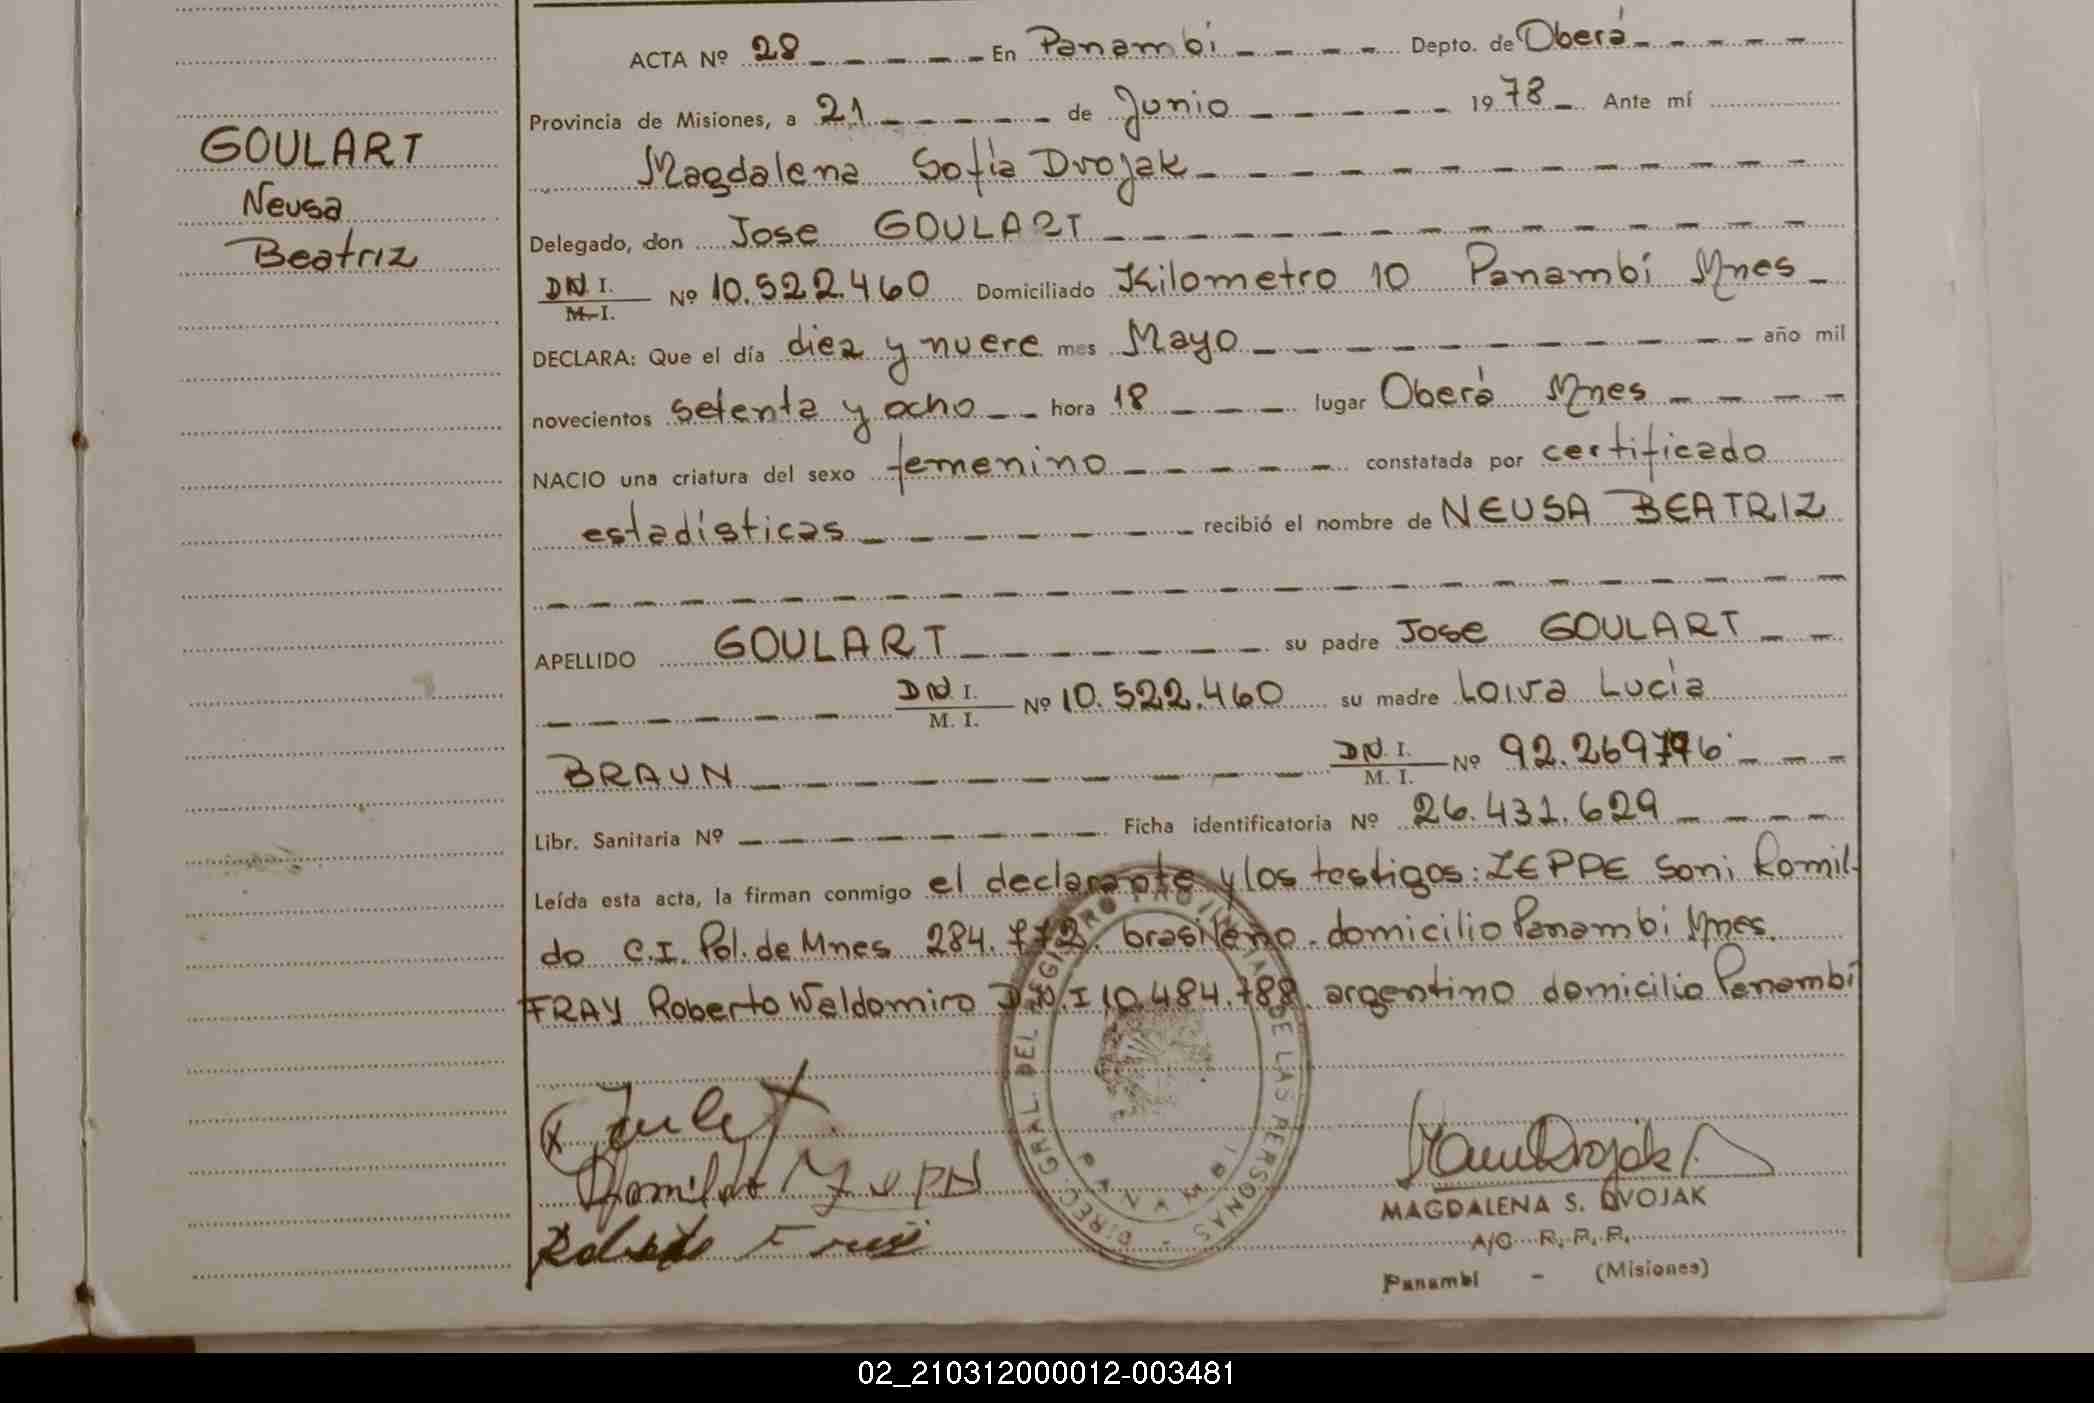 ACTA Nº 28 En Panambí Depto. de Oberá
Provincia de Misiones, a 21 de Junio 1978 Ante mí
Magdalena Sofía Dvojak
GOULART
Neusa
Beatriz
Delegado, don Jose GOULART
D.N.I.
M. I.
Nº 10.522.460 Domiciliado Kilometro 10 Panambí Mnes
DECLARA: Que el día diez y nueve mes Mayo año mil
novecientos setenta y ocho hora 18 lugar Oberá Mnes
NACIO una criatura del sexo femenino constatada por certificado
estadísticas recibió el nombre de NEUSA BEATRIZ
APELLIDO GOULART su padre Jose GOULART
D.N.I.
M. I.
Nº 10.522.460 su madre Loiva Lucía
BRAUN D.N.I.
M. I.
Nº 92.269
Libr. Sanitaria Nº Ficha identificatoria Nº 26.431.629
Leída esta acta, la firman conmigo el declarante y los testigos: ZEPPE Soni Romil-
do C.I. Pol. de Mnes 284.772. brasileño. domicilio Panambí Mnes.
FRAY Roberto Waldomiro D.N.I 10.484.788. argentino domicilio Panambí
DIREC. GRAL. DEL REGISTRO PROVINCIAL DE LAS PERSONAS
PANAMBI
MAGDALENA S. DVOJAK
A/C R. P. P.
Panambí - (Misiones)
02_210312000012-003481